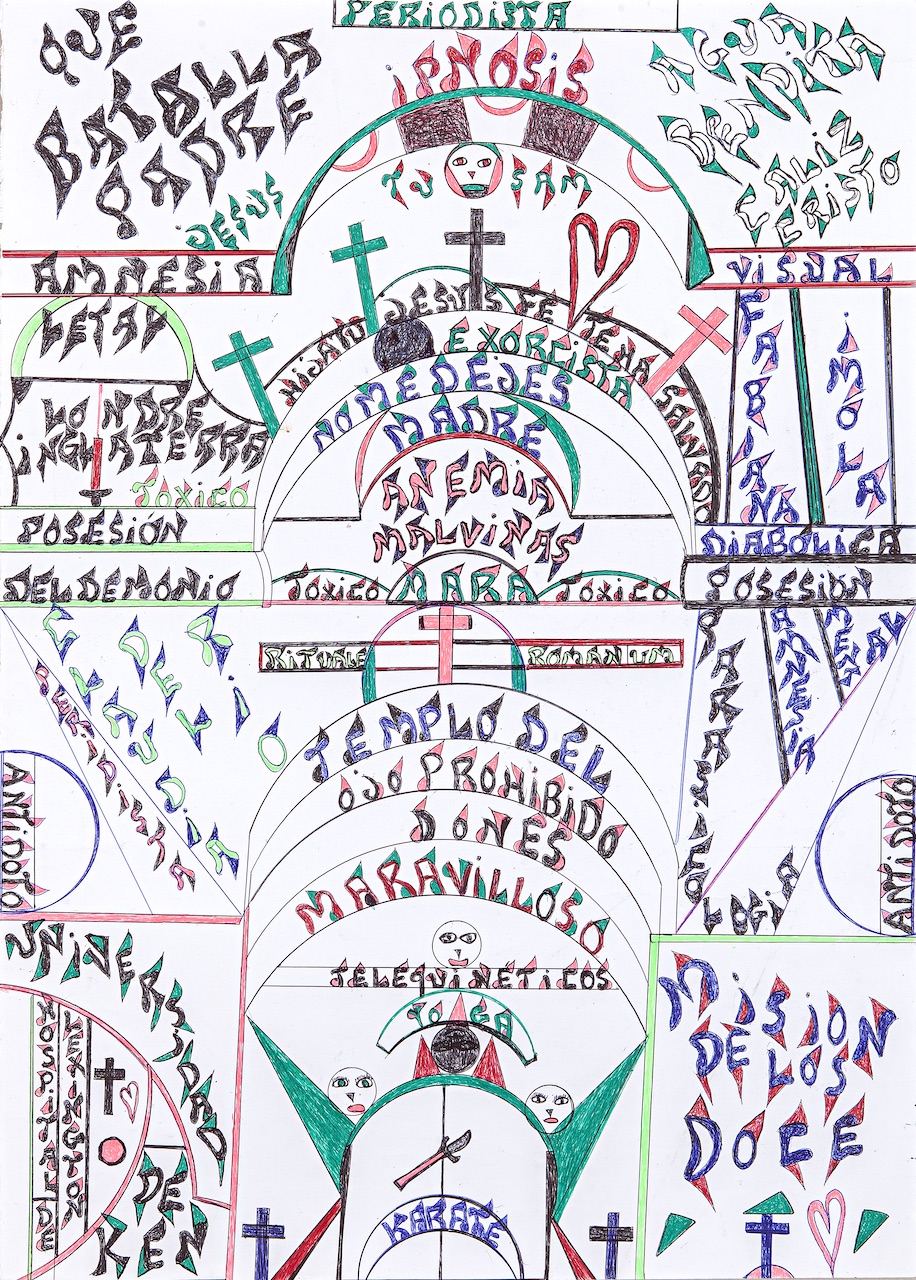 PERIODISTA
QUE
BATALLA
PADRE
JESUS
iPNOSiS
TU SAM
AGUARA
DEL
CALiZ
CRiSTO
AMNESiA
ViSUAL
LETAL
LONDRE
iNGLATERRA
TOXiCO
POSESiÓN
DEL DEMONiO
HiJATU JESUS FE TENA SALVADO
EXORCiSTA
NO ME DEJES
MADRE
ANEMiA
MALViNAS
TOXiCO MARA TOXiCO
FABiANA
iMOLA
DiABOLiCA
POSESiÓN
RiTUALE ROMANUM
DEL RiO
CLAUDiA
PERiODiSTA
ANTiDOTO
PARASiCOLOGiA
AMNESiA
MENTAL
ANTiDOTO
TEMPLO DEL
OJO PROHiBiDO
DONES
MARAViLLOSO
TELEQUiNETiCOS
YOGA
KARATE
UNiVERSiDAD
DE
KEN
HOSPiTAL DE
LEXiNGTON
MiSiON
DE LOS
DOCE